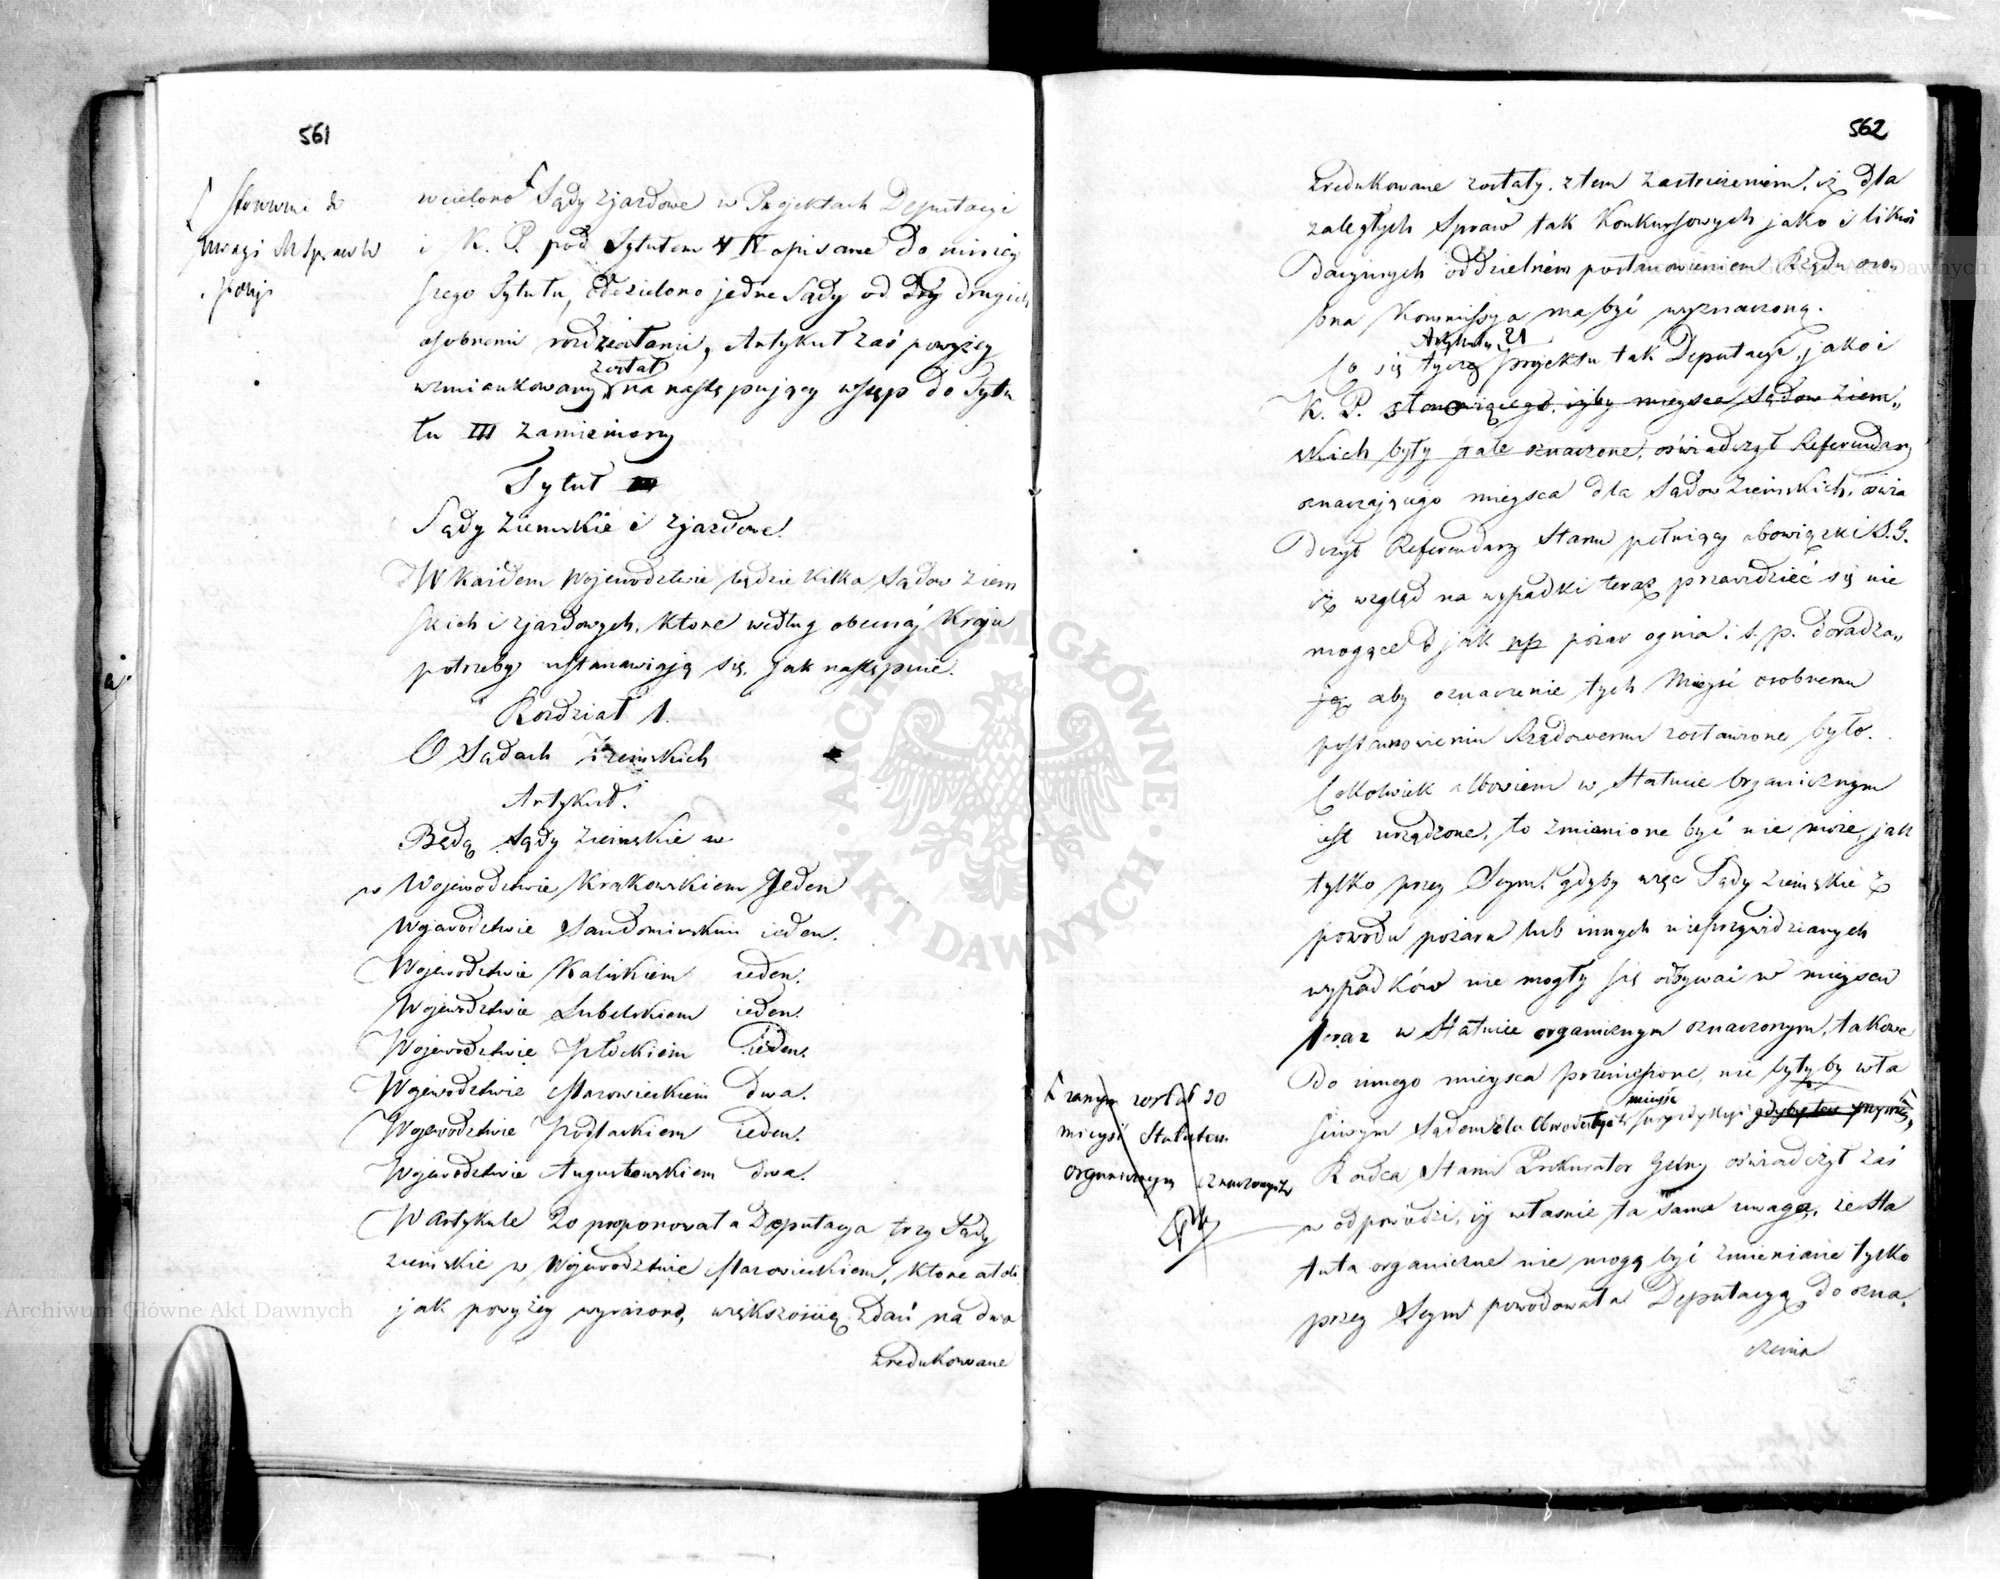 561
Stosownie do
uwagi M Spraw W
wcielono Sądy zjazdowe w Projektach Deputacyi
i K. P. pod Tytułem IV opisane do niniey
szego Tytułu, oddzielono jedne Sądy od drugich
osobnemi rozdziałami, Artykuł zaś powyżey
został
wzmiankowany na następujący wstęp do Tytu
łu III zamieniony
Tytuł III
Sądy Ziemskie i Zjazdowe.
W każdem Województwie będzie kilka Sądow Ziem
skich i zjazdowych, które według obecnéj kraju
potrzeby ustanawiają się, jak następuie.
Rozdział 1.
O Sądach Ziemskich
Artykuł.
Będą Sądy Ziemskie w
w Województwie Krakowskiem Jeden
Województwie Sandomirskiem ieden.
Województwie Kaliskiem ieden.
Województwie Lubelskiem ieden.
Województwie Płockiem ieden.
Województwie Mazowieckiem Dwa.
Województwie Podlaskiem ieden.
Województwie Augustowskiem dwa.
W Artykule 20 proponowała Deputacya trzy Sądy
ziemskie w Województwie Mazowieckiem, które atoli
jak powyżey wyrażono, większością zdań na dwa
zredukowane
562
zredukowane zostały, z tem zastrzeżeniem, iż dla
zaległych Spraw tak Konkursowych jako i likwi
dacyinych oddzielném postanowieniem Rządu oso„
bna Kommissya ma być wyznaczoną.
Artykułu 21
Co się tycze projektu tak Deputacyi, jako i
K. P. stanowiącego, iżby mieysca Sądow Ziem„
skich były stale oznaczone, oświadczył Referendarz
oznaczającego mieysca dla Sądow Ziemskich, oświa
dczył Referendarz Stanu pełniący obowiązki S. G.
iż wzgląd na wypadki teraz przewidzieć się nie
mogące jak np pożar ognia i t. p. doradza„
ją, aby oznaczenie tych Mieysc osobnemu
postanowieniu Rządowemu zostawione było.
Cokolwiek albowiem w Statucie Organicznym
iest urządzone, to zmienione być nie może, jak
tylko przez Seym, gdyby więc Sądy ziemskie z
powodu pożaru lub innych nieprzewidzianych
wypadków nie mogły się odbywać w mieyscu
teraz w Statucie organicznym oznaczonym, takowe
do innego mieysca przeniesione, nie byłyby wła
ściwym Sądem dla
Radca Stanu Prokurator Gełny oświadczył zaś
w odpowiedzi, iż własnie ta sama uwaga, że Sta
tuta organiczne nie mogą być zmieniane tylko
przez Seym powodowała Deputacyą do ozna„
czenia
mieysc Statutem
organicznym oznaczonych